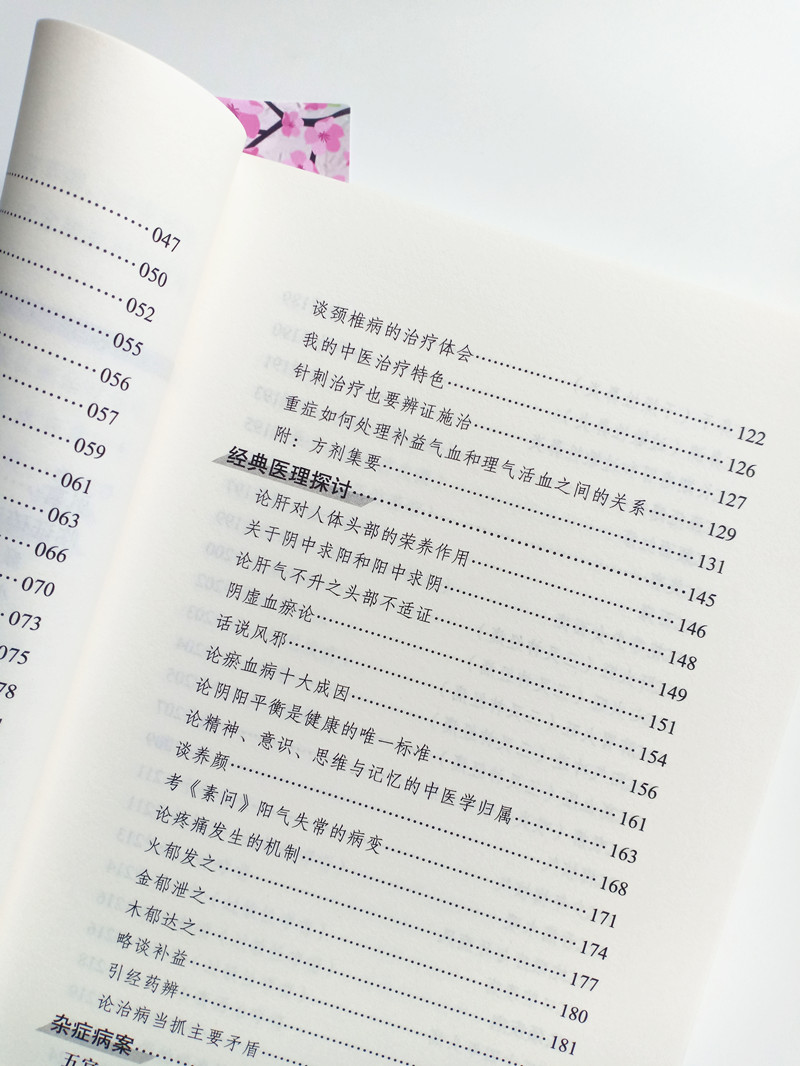 047
050
052
055
056
057
059
061
063
066
070
073
075
谈颈椎病的治疗体会……122
我的中医治疗特色……126
针刺治疗也要辨证施治……127
重症如何处理补益气血和理气活血之间的关系……129
附：方剂集要……131
经典医理探讨……145
论肝对人体头部的荣养作用……146
关于阴中求阳和阳中求阴……148
论肝气不升之头部不适证……149
阴虚血瘀论……151
话说风邪……154
论瘀血病十大成因……156
论阴阳平衡是健康的唯一标准……161
论精神、意识、思维与记忆的中医学归属……163
谈养颜……168
考《素问》阳气失常的病变……171
论疼痛发生的机制……174
火郁发之……177
金郁泄之……180
木郁达之……181
略谈补益……
引经药辨……
论治病当抓主要矛盾……
杂症病案……